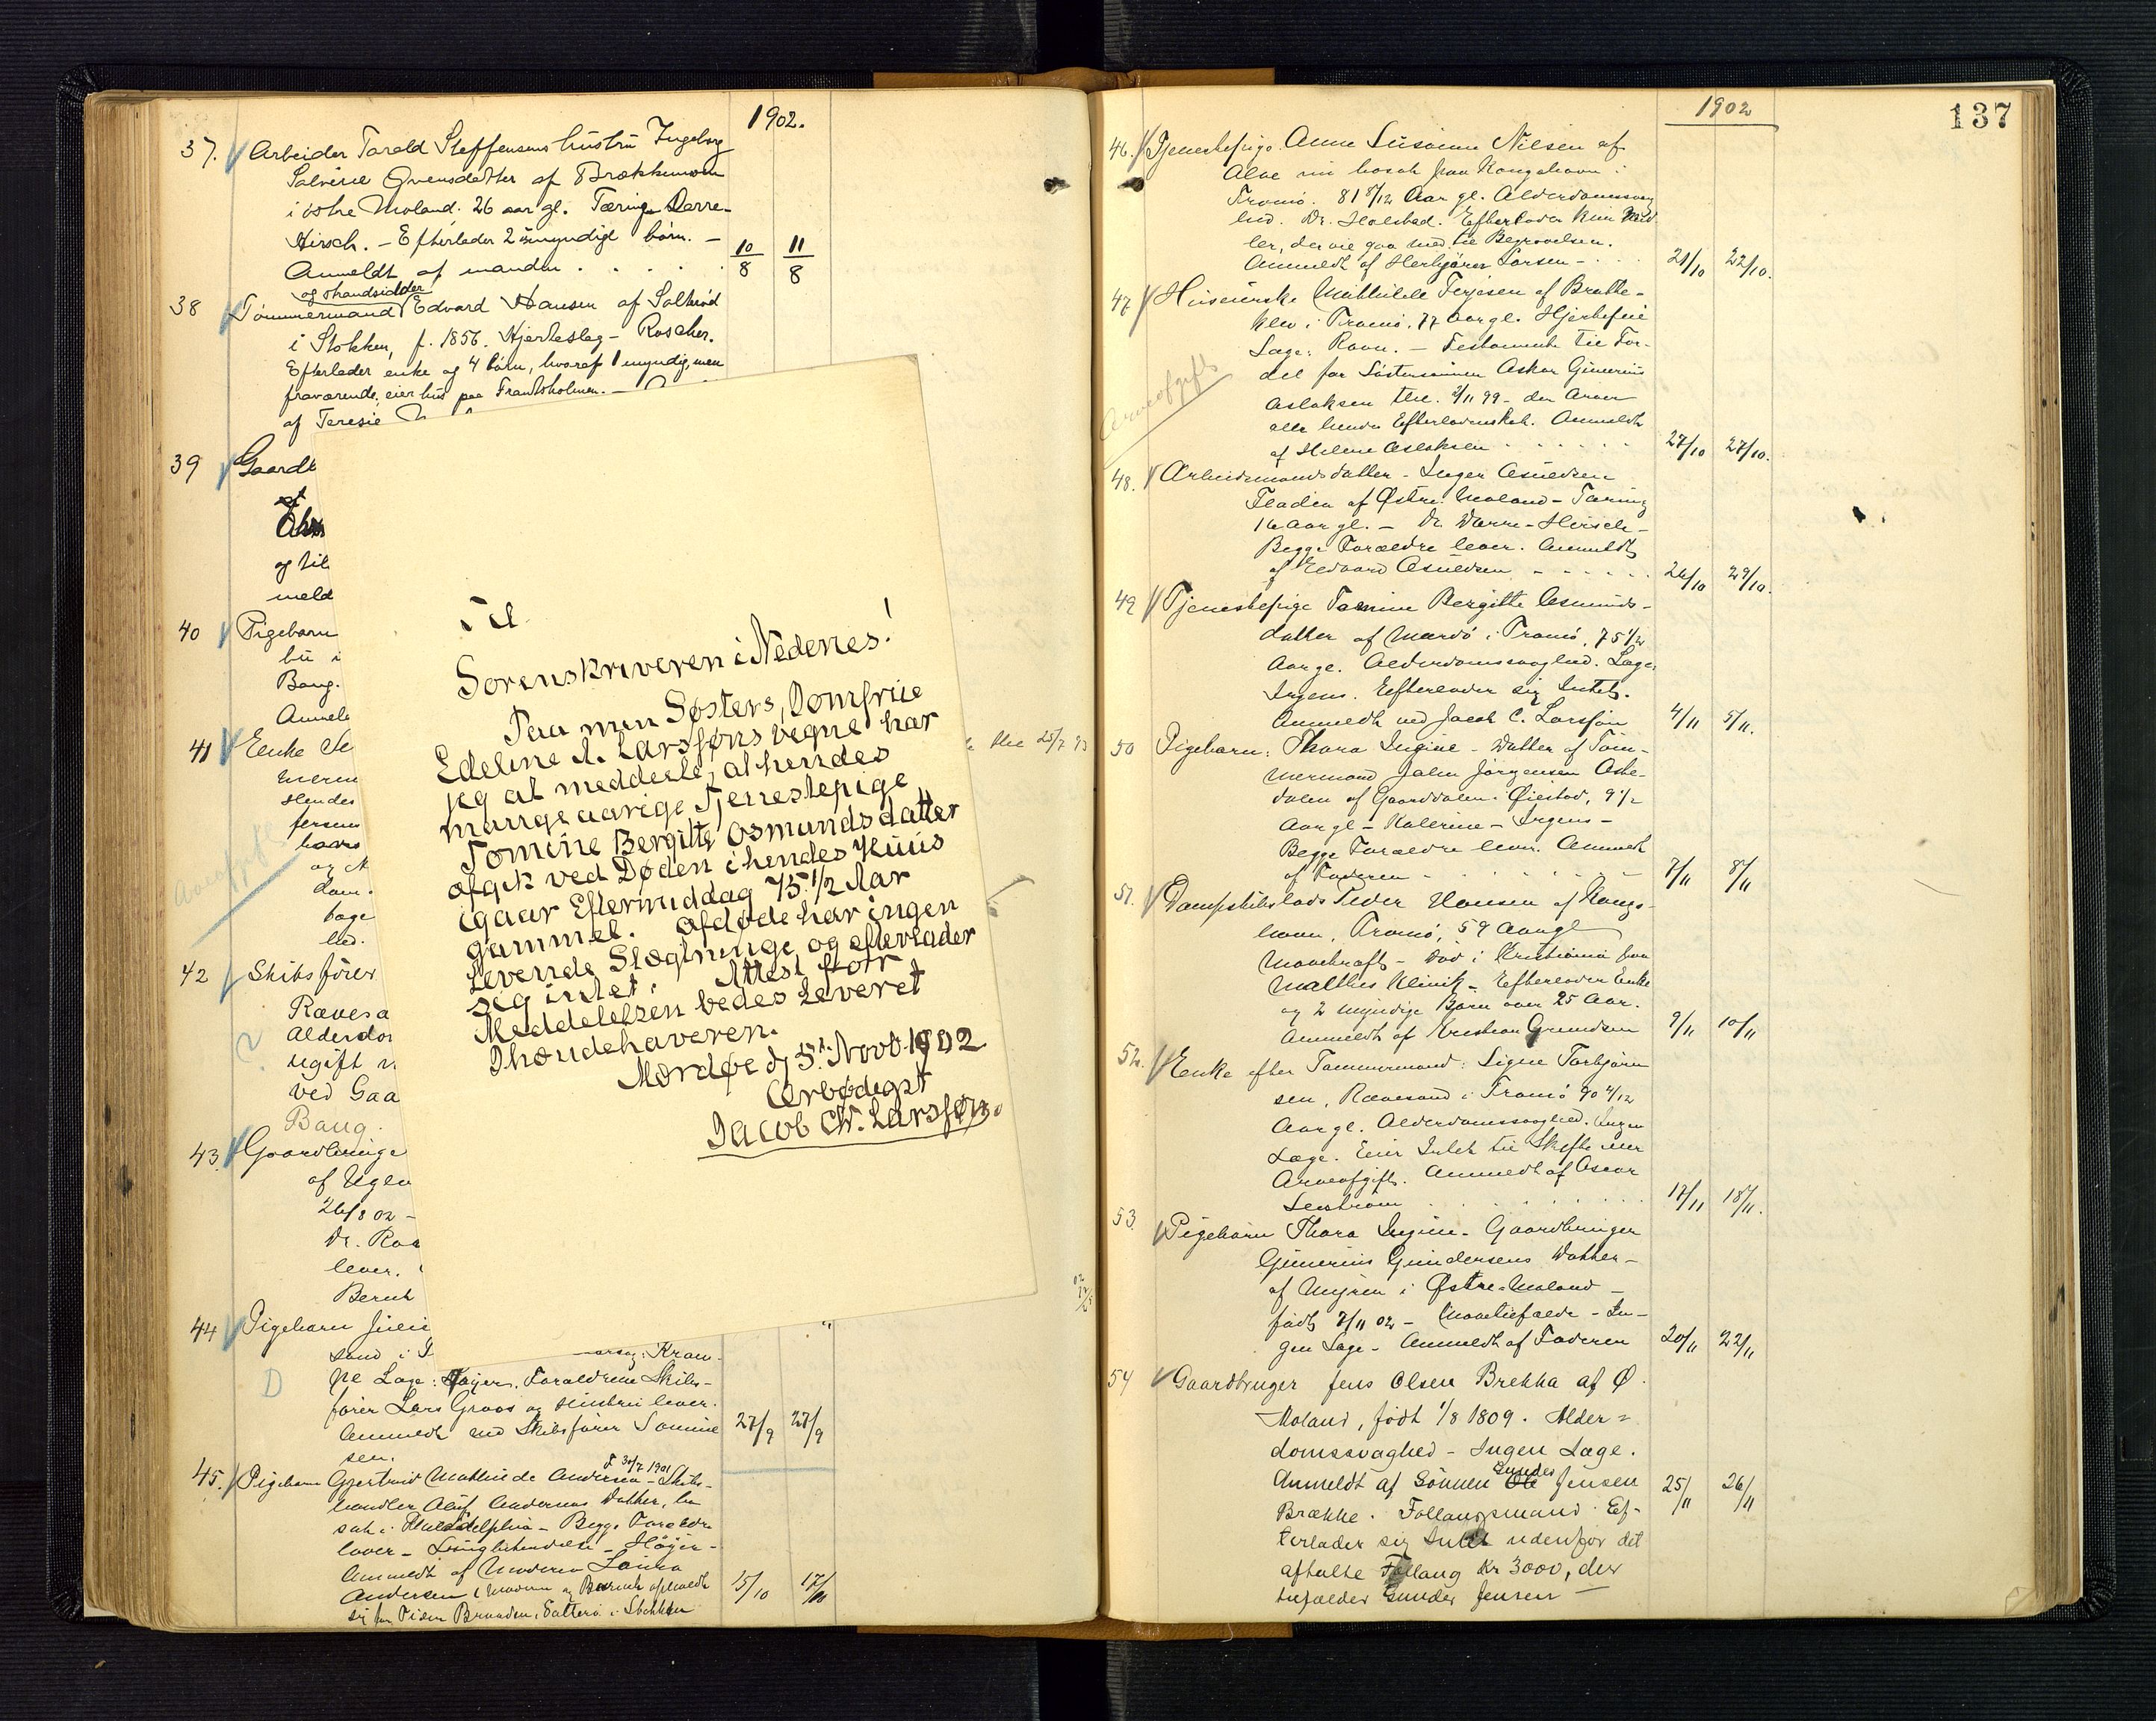 1902.
37. Arbeider Tarald Steffensens hustru Ingeborg
Salvine Ovensdatter af Brækkemoen
i østre Moland. 26 aar gl. Tæring Darre-
Hirsch. - Efterlader 2 umyndige børn. -
Anmeldt af manden . . . . . 10/8 11/8
og strandsidder
38 Tømmermand Edvard Hansen af Salthrød
i Stokken, f. 1856. Hjerteslag - Roscher.
Efterlader enke og 4 børn, hvoraf 1 myndig, men
fraværende, eier hus paa Frantsholmen. -
af Teresie
39 Gaardb
af
og til
meld
40 Pigebarn
bu i
Bang.
Anmeld
41 Enke
Hendes
og
dom.
lid.
Arveafgift
42 Skibsfører
Rævesa
Alderdo
ugift
ved Gaa
Bang.
43. Gaardbruge
af
26/8 02 -
Dr.
lever.
44 Pigebarn
sand i
D
pe Læge: Høyer. Forældrene Skibs-
fører Lars Groos og Hustru lever.
Anmeldt ved Skibsfører Tomine
sen. 27/9 27/9
f. 30/7 1901
45. Pigebarn Gjertrud Mathilde Andersen - Skibs-
handler Oluf Andersens Datter, bo
sat i Philadelphia - Begge Forældre
lever - Lungebetændelse - Høyer -
Anmeldt af Moderen Lovisa
Andersen (Moderen og Barnet opholdt 15/10 17/10
sig
Til
Sorenskriveren i Nedenes!
Paa min Søsters, Jomfrue
Edeline A. Larssøns vegne har
jeg at meddeele, at hendes
mangeaarige Tjenestepige
Tomine Bergitte Osmundsdatter
afgik ved Døden i hendes Huus
igaar Eftermiddag 75 1/2 Aar
gammel. Afdøde har ingen
levende Slægtninge og efterlader
sig intet. Attest for
Meddelelsen bedes leveret
Ihændehaveren.
Mærdøe d. 5t. Novb. 1902
Ærbødigst
Jacob Chr. Larssøn.
1902
137
46. Tjenestepige Anne Susanne Nilsen af
Alve
Tromø. 81 8/12 Aar gl. Alderdomssvag
hed. Dr. Holstad. Efterlader kun Mid
ler, der vil gaa med til Begravelsen.
Anmeldt af Herbjørn Larsen - . . 21/10 22/10.
47. Huseierske Mathilde Terjesen af Bratte-
klev i Tromø, 77 Aar gl. Hjertefeil
Læge: Ravn. - Testamente til For-
del for Søstersønnen Askar Gunerius
Aslaksen thl. 2/11 99 - der Arver
alle hendes Efterladenskab. Anmeldt
af Helene Aslaksen . . . . . . 27/10 27/10.
Arveafgift
48. Arbeidsmandsdatter - Inger Asuldsen
Fladen af Østre Moland - Tæring
16 Aar gl. - Dr. Darre-Hirsch -
Begge Forældre lever. Anmeldt
af Edvard Asuldsen - - - - - . 26/10 29/10.
49 Tjenestepige Tomine Bergitte Osmunds-
datter af Mærdø i Tromø, 75 1/2
Aar gl. Alderdomssvaghed. Læge:
Irgens. Efterlader sig Intet.
Anmeldt ved Jacob C. Larssøn 4/11 5/11.
50 Pigebarn: Thora Ingine - Datter af Tøm-
mermand John Jørgensen Aske-
dalen af Gaarddalen. Øiestad, 9 1/2
Aar gl - Kolerine - Irgens -
Begge Forældre lever. Anmeldt
af Faderen - . . . . 7/11 8/11
51. Dampskibslods Peder Hansen af Kongs-
havn, Tromø, 59 Aar gl
Mavekræft - død i Kristiania paa
Malthes Klinik - Efterlader Enke
og 2 myndige Børn over 25 Aar.
Anmeldt af Kristian Gundersen 9/11 10/11
52. Enke efter Tømmermand: Signe Torbjørn
sen, Rævesand i Tromø 90 4/12
Aar gl. Alderdomssvaghed. Ingen
Læge. Eier Intet til Skifte eller
Arveafgift. Anmeldt af Oscar
17/11 18/11.
53. Pigebarn Thora Ingine - Gaardbruger
Gunerius Gundersens Datter -
af Myren i Østre Moland -
født 7/11 02 - In-
gen Læge - Anmeldt af Faderen 20/11 22/11
54 Gaardbruger Jens Olsen Brekka af Ø.
Moland, født 1/8 1809. Alder=
domssvaghed - Ingen Læge.
Gunder
Anmeldt af Sønnen Ole Jensen 25/11 26/11
Brække. Follaugsmand. Ef-
terlader sig Intet udenfor det
aftalte Follaug kr 3000, der
tilfalder Gunder Jensen -